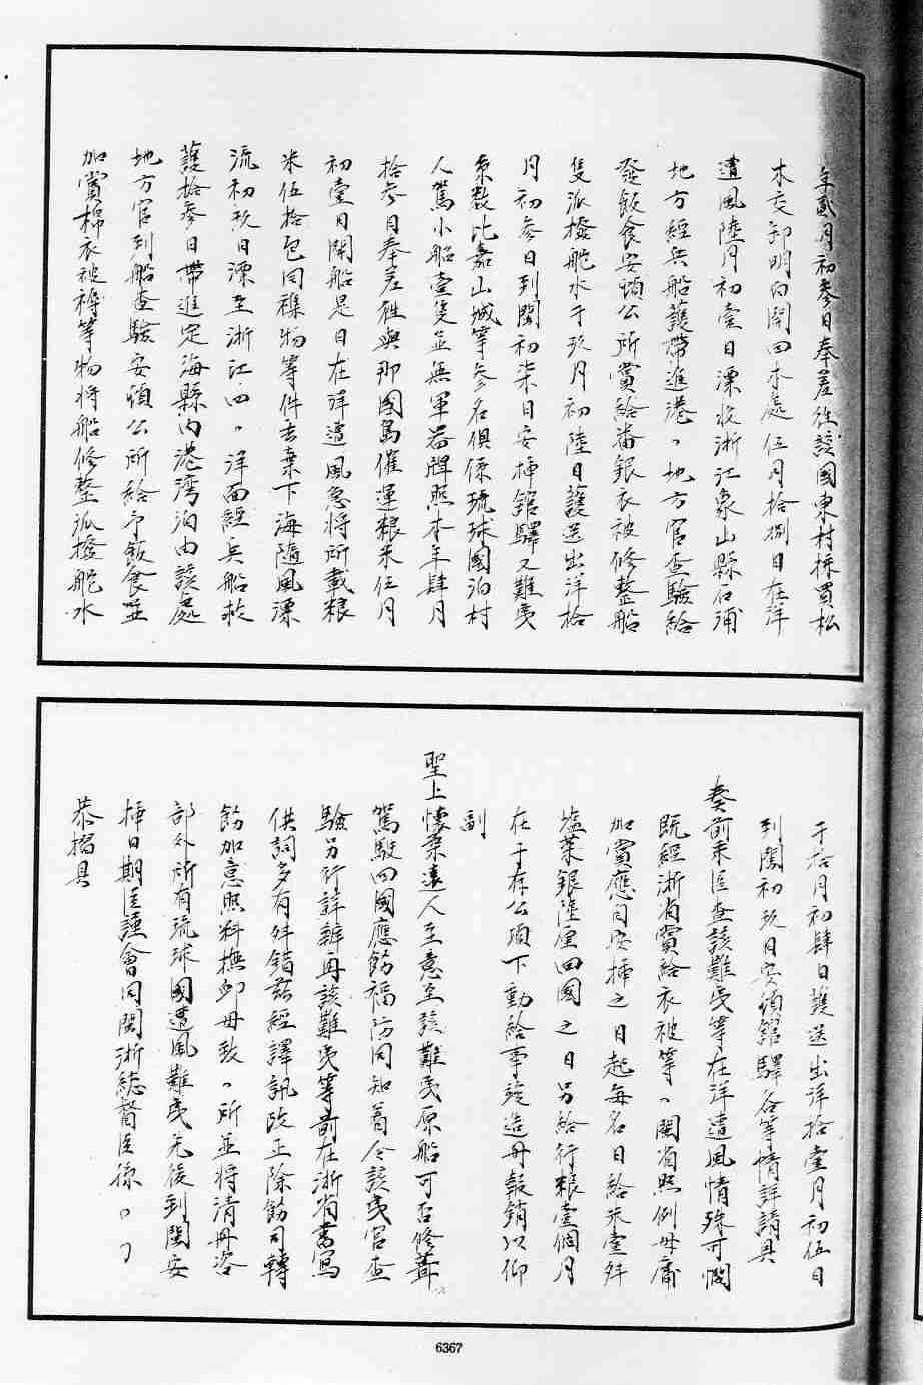 年貳月初參日奉差往該國東村採買松
木交卸明白開回本處伍月拾捌日在洋
遭風陸月初壹日漂收浙江象山縣石浦
地方經兵船護帶進港、地方官查驗給
發飯食安頓公所賞給番銀衣被修整船
隻派撥舵水于玖月初陸日護送出洋拾
月初參日到閩初柒日安揷舘驛又難夷
條数比嘉山城等參名俱係琉球國泊村
人駕小船壹隻並無軍器牌照本年肆月
拾參日奉差徃與那國島催運粮米伍月
初壹日開船是日在洋遭風急將所載粮
米伍拾包同襍物等件丢棄下海隨風漂
流初玖日漂至浙江四、洋面經兵船救
護拾參日帶進定海縣内港湾泊由該處
地方官到船查驗安頓公所給予飯食並
加賞棉衣被褥等物將船修整派撥舵水
于拾月初肆日護送出洋拾壹月初伍日
到閩初玖日安頓舘驛各等情詳請具
奏前来臣查該難夷等在洋遭風情殊可憫
既經浙省賞給衣被等、閩省照例毋庸
加賞應自安揷之日起每名日給米壹升
塩菜銀陸厘回國之日另給行粮壹個月
在于存公項下動給事竣造册報銷以仰
副
聖上懷柔遠人至意至該難夷原船可否修葺
駕駛回國應飭福防同知着令該夷官查
驗另行詳辦再該難夷等前在浙省書寫
供詞多有舛錯茲經譯訊改正除飭司轉
飭加意照料撫卹毋致、所並將清册咨
部外所有琉球國遭風難夷先後到閩安
揷日期臣謹會同閩浙總督臣孫、、
恭摺具
6367